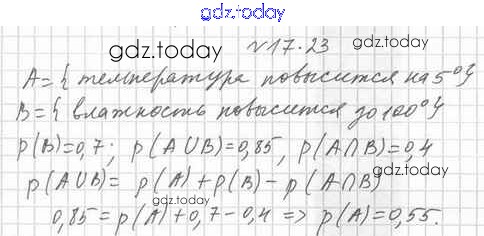 gdz.today
gdz.today №17.23
A={температура повысится на 5°}
B={влажность повысится до 100%}
p(B)=0,7; p(A∪B)=0,85, p(A∩B)=0,4
gdz.today
p(A∪B)= p(A)+p(B)-p(A∩B)
0,85=p(A)+0,7-0,4 => p(A)=0,55.
gdz.today